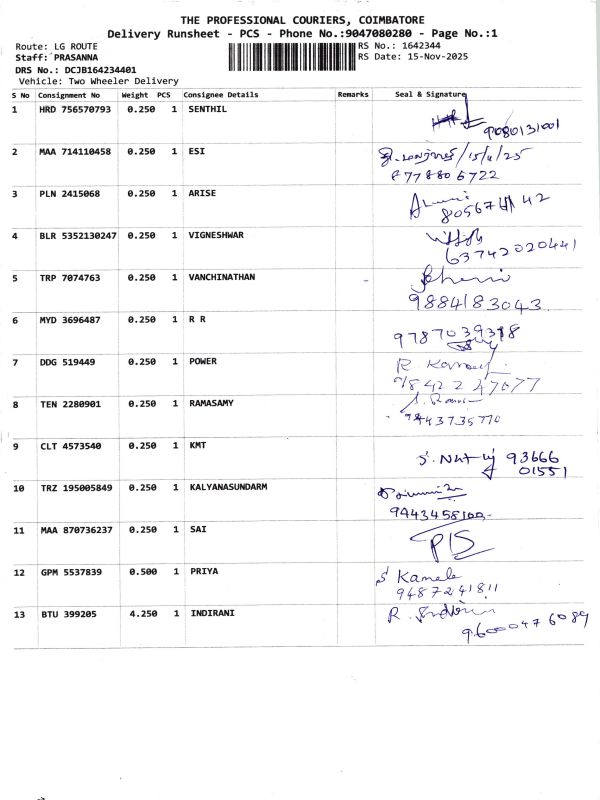 THE PROFESSIONAL COURIERS, COIMBATORE
Delivery Runsheet - PCS - Phone No.:9047080280 - Page No.:1
Route: LG ROUTE RS No.: 1642344
Staff: PRASANNA RS Date: 15-Nov-2025
DRS No.: DCJB164234401
Vehicle: Two Wheeler Delivery
S No Consignment No Weight PCS Consignee Details Remarks Seal & Signature
1 HRD 756570793 0.250 1 SENTHIL
9080131001
2 MAA 714110458 0.250 1 ESI
877880 6722
3 PLN 2415068 0.250 1 ARISE
4 BLR 5352130247 0.250 1 VIGNESHWAR
63742020441
5 TRP 7074763 0.250 1 VANCHINATHAN
9884183043
6 MYD 3696487 0.250 1 R R
9787039318
7 DDG 519449 0.250 1 POWER
8 TEN 2280901 0.250 1 RAMASAMY
9443735770
9 CLT 4573540 0.250 1 KMT
93666
01551
10 TRZ 195005849 0.250 1 KALYANASUNDARM
9443458100
11 MAA 870736237 0.250 1 SAI
12 GPM 5537839 0.500 1 PRIYA
S Kamala
9487241811
13 BTU 399205 4.250 1 INDIRANI
9600047 6089